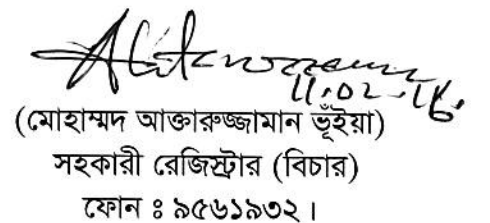 11.02.16.
(মোহাম্মদ আক্তারুজ্জামান ভূঁইয়া)
সহকারী রেজিস্ট্রার (বিচার)
ফোন ঃ ৯৫৬১৯৩২।